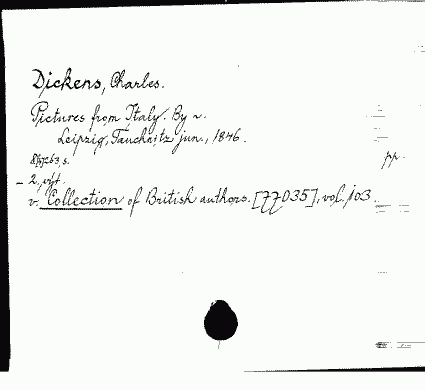 Dickens, Charles.
Pictures from Italy. By ~.
Leipzig, Tauchnitz jun., 1846.
s.
pp.
- 2. výt.
v. Collection of British authors. [77035], vol. 103.